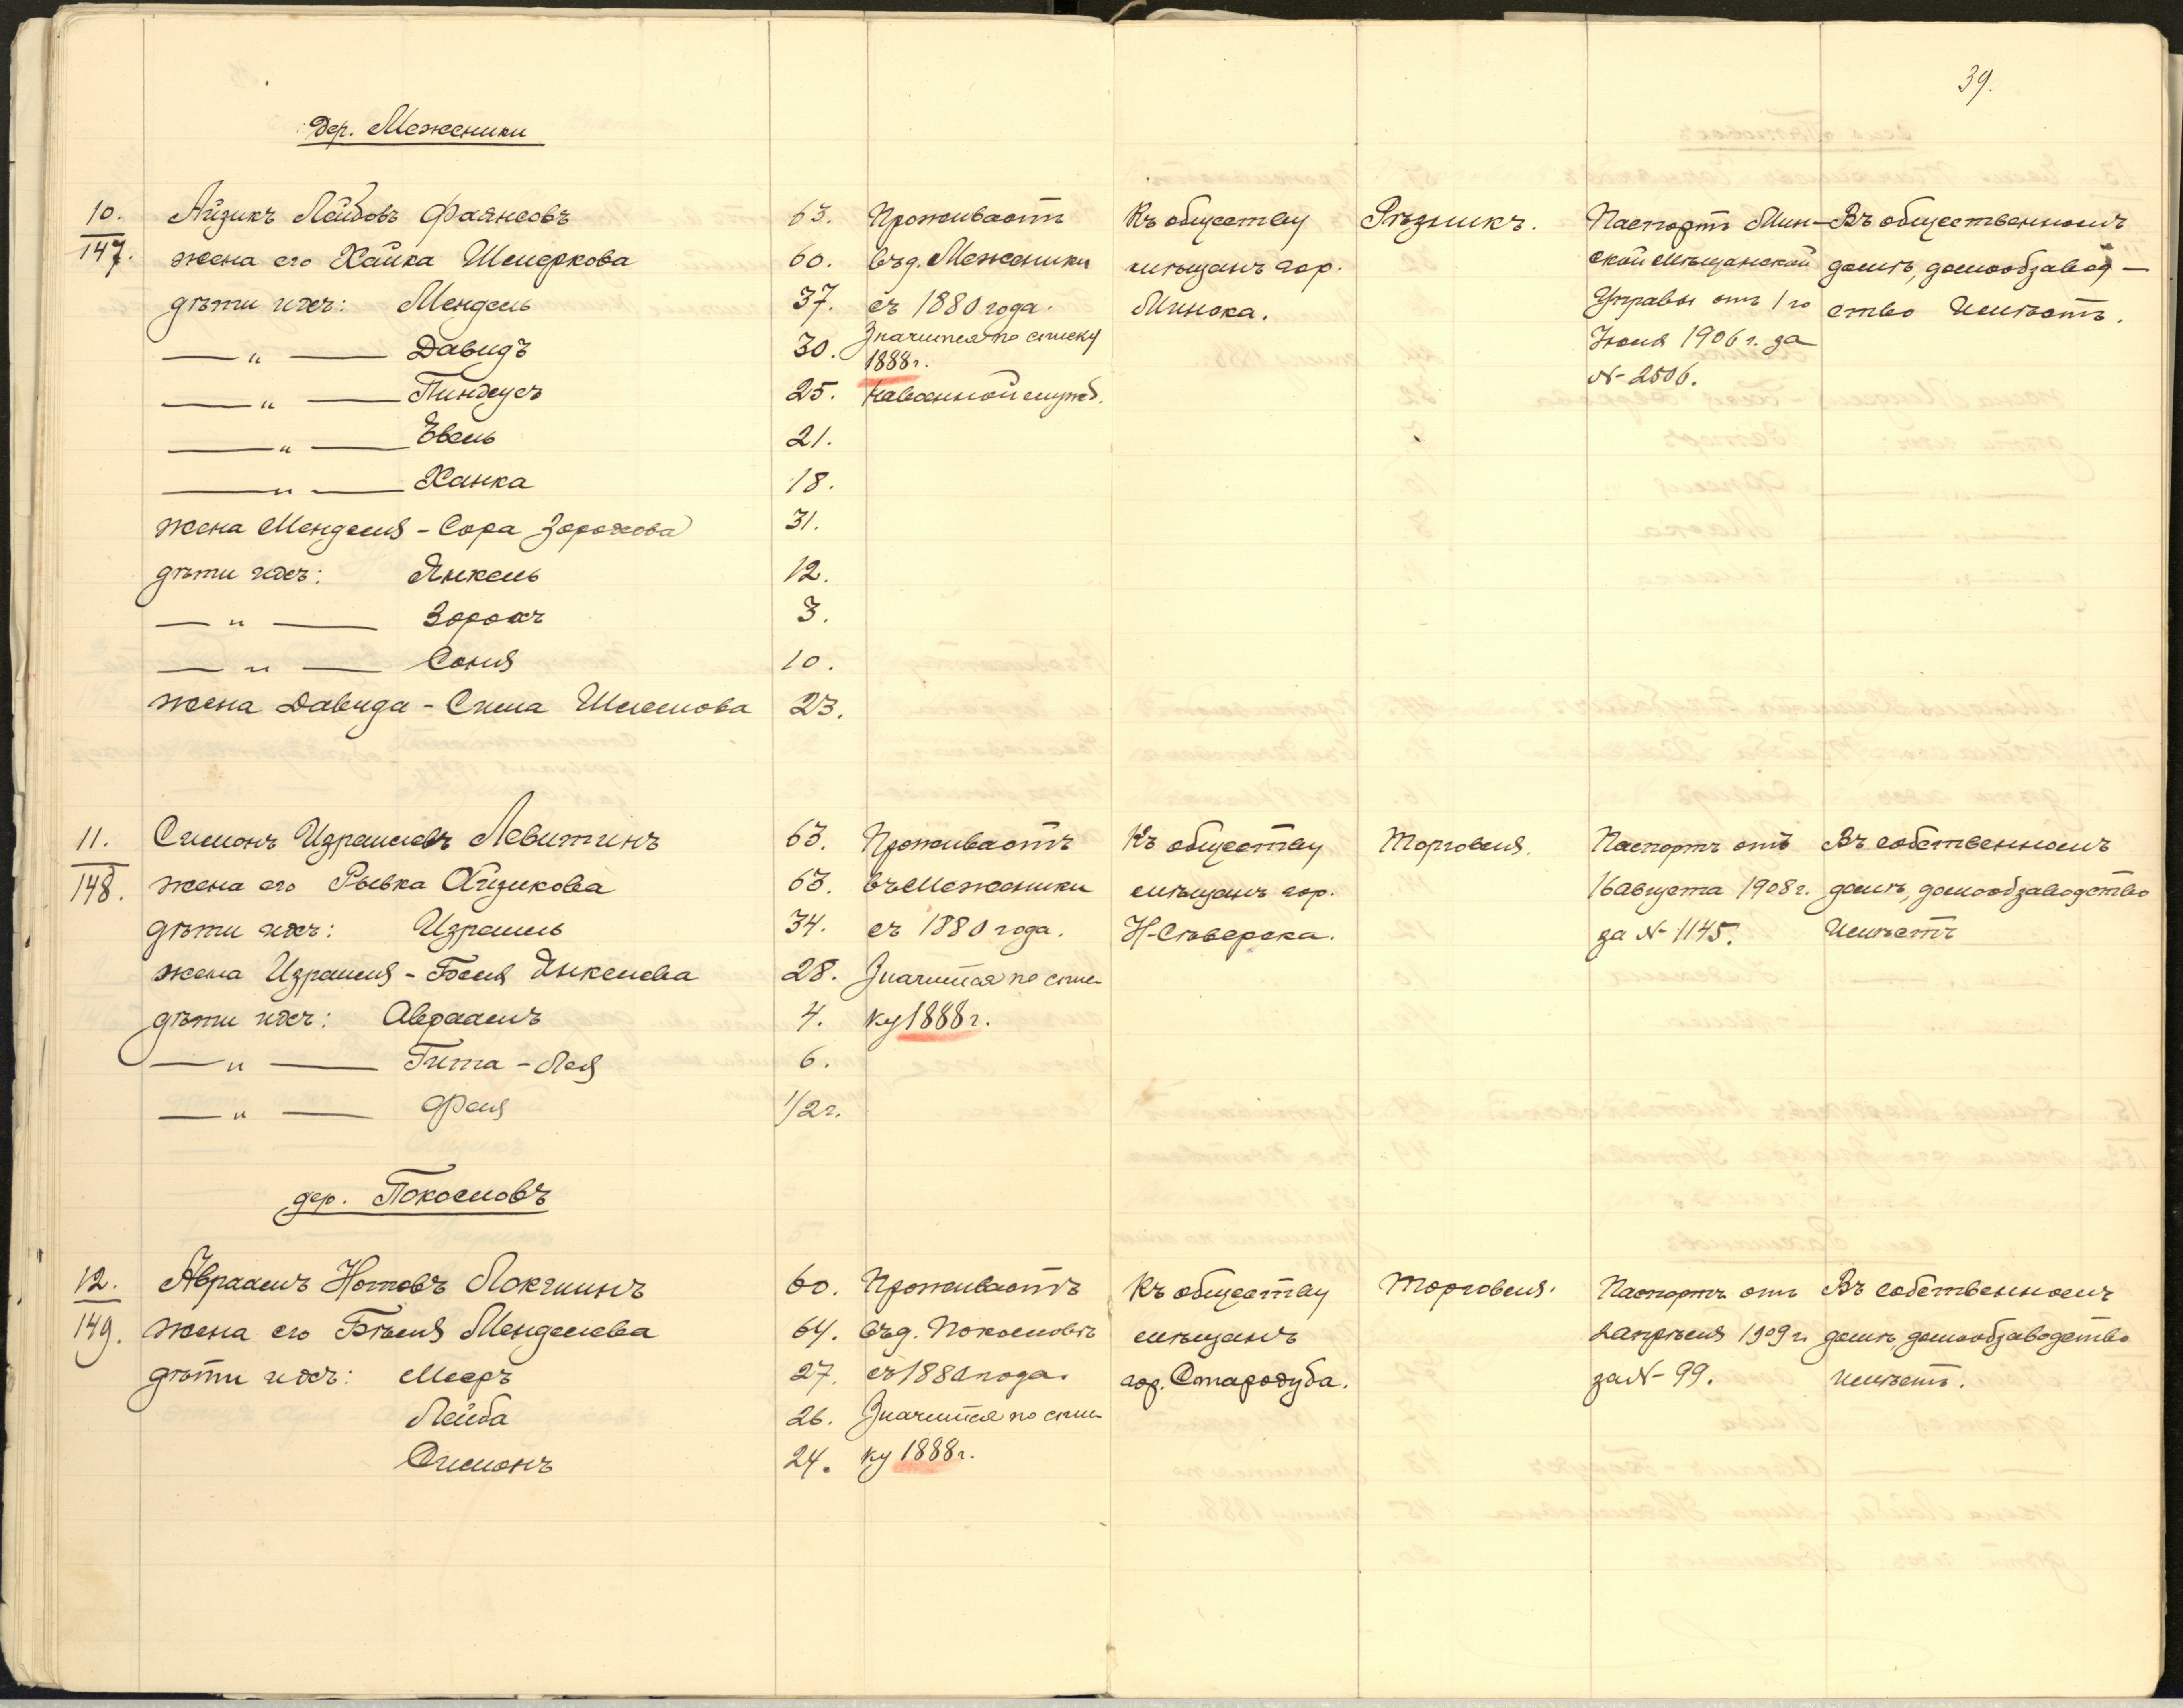 39.
Дер. Меженики
10.
147.
Айзикъ Лейбовъ Фаянсовъ
63.
жена его Хайка Шендркова
60.
дѣти ихъ: Мендель
37.
— „ — Давидъ
30.
— „ — Пинхусъ
25.
— „ — Евель
21.
— „ — Ханка
18.
жена Менделя - Сора Зорохова
31.
дѣти ихъ: Янкель
12.
— „ — Зорохъ
3.
— „ — Соня
10.
жена Давида - Сима Шлемова
23.
Проживаетъ
въ д. Меженики
съ 1880 года.
Значится по списку
1888 г.
на военной служб.
Къ обществу
мѣщанъ гор.
Минска.
Рѣзникъ.
Паспортъ Мин-
ской мѣщанской
Управы отъ 1го
Іюня 1906 г. за
№ 2506.
Въ общественномъ
домѣ, домообзавод-
ство имѣетъ.
11.
148.
Симонъ Израилевъ Левитинъ
63.
жена его Рывка Айзикова
63.
дѣти ихъ: Израиль
34.
жена Израиля - Бася Янкелева
28.
дѣти ихъ: Авраамъ
4.
— „ — Гита - Лея
6.
— „ — Фаля
1/2 г.
Проживаетъ
въ Меженики
съ 1880 года.
Значится по спис-
ку 1888 г.
Къ обществу
мѣщанъ гор.
Н-Сѣверска.
Торговля.
Паспортъ отъ
16 августа 1908 г.
за № 1145.
Въ собственномъ
домѣ, домообзаводство
имѣетъ
дер. Покословъ
12.
149.
Авраамъ Нотовъ Локшинъ
60.
жена его Бѣля Менделева
64.
дѣти ихъ: Мееръ
27.
Лейба
26.
Симонъ
24.
Проживаетъ
въ д. Покословѣ
съ 1880 года.
Значится по спис-
ку 1888 г.
Къ обществу
мѣщанъ
гор. Стародуба.
Торговля.
Паспортъ отъ
2 апрѣля 1909 г.
за № 99.
Въ собственномъ
домѣ, домообзаводство
имѣетъ.